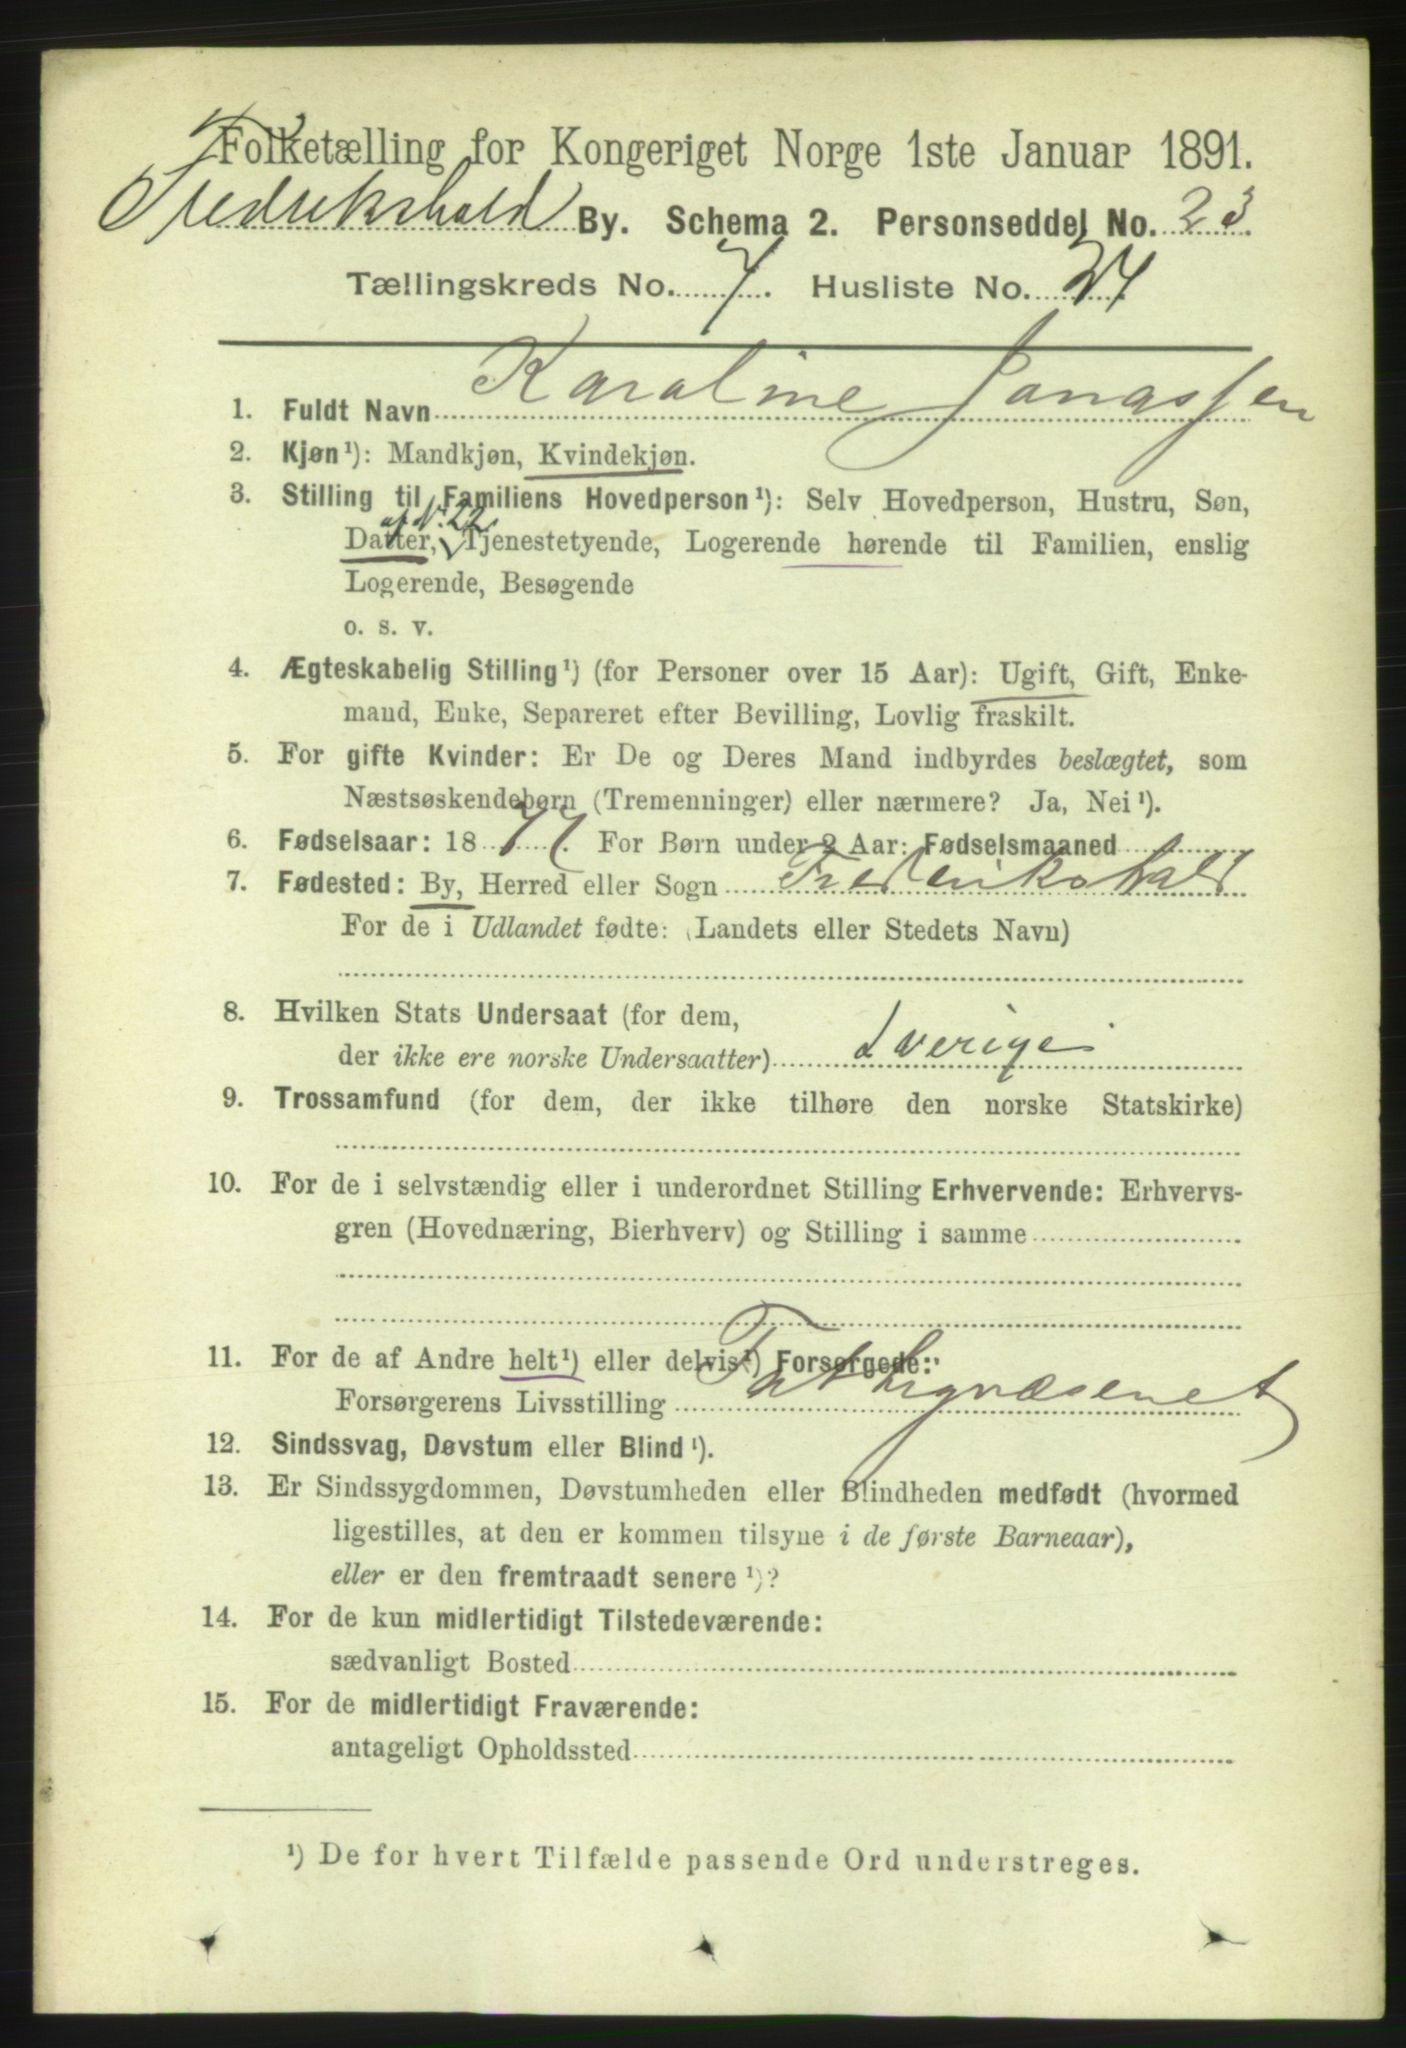 Folketælling for Kongeriget Norge 1ste Januar 1891.
Fredrikshald By. Schema 2. Personseddel No. 23
Tællingskreds No. 7. Husliste No. 27
1. Fuldt Navn Karoline Jonassen
2. Kjøn¹): Mandkjøn, Kvindekjøn.
3. Stilling til Familiens Hovedperson¹): Selv Hovedperson, Hustru, Søn,
af N. 22
Datter, Tjenestetyende, Logerende hørende til Familien, enslig
Logerende, Besøgende
o. s. v.
4. Ægteskabelig Stilling¹) (for Personer over 15 Aar): Ugift, Gift, Enke-
mand, Enke, Separeret efter Bevilling, Lovlig fraskilt.
5. For gifte Kvinder: Er De og Deres Mand indbyrdes beslægtet, som
Næstsøskendebørn (Tremenninger) eller nærmere? Ja, Nei¹).
6. Fødselsaar: 1877. For Børn under 2 Aar: Fødselsmaaned
7. Fødested: By, Herred eller Sogn Frederikshald
For de i Udlandet fødte: (Landets eller Stedets Navn)
8. Hvilken Stats Undersaat (for dem,
der ikke ere norske Undersaatter) Sverige
9. Trossamfund (for dem, der ikke tilhøre den norske Statskirke)
10. For de i selvstændig eller i underordnet Stilling Erhvervende: Erhvervs-
gren (Hovednæring, Bierhverv) og Stilling i samme
11. For de af Andre helt¹) eller delvis¹) Forsørgede:
Forsørgerens Livsstilling Fattigvæsenet
12. Sindssvag, Døvstum eller Blind¹).
13. Er Sindssygdommen, Døvstumheden eller Blindheden medfødt (hvormed
ligestilles, at den er kommen tilsyne i de første Barneaar),
eller er den fremtraadt senere¹)?
14. For de kun midlertidigt Tilstedeværende:
sædvanligt Bosted
15. For de midlertidigt Fraværende:
antageligt Opholdssted
¹) De for hvert Tilfælde passende Ord understreges.